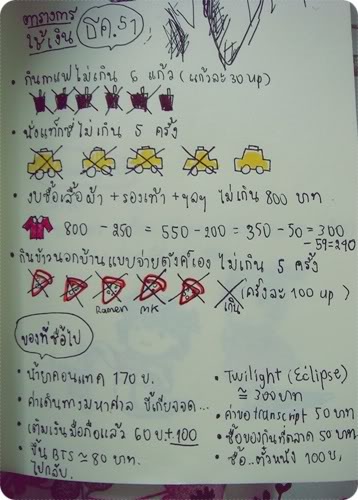 ตารางการ
ใช้เงิน
ธค. 51
• กินกาแฟไม่เกิน 6 แก้ว (แก้วละ 30 up)
• นั่งแท็กซี่ไม่เกิน 5 ครั้ง
• งบซื้อเสื้อผ้า + รองเท้า + ฯลฯ ไม่เกิน 800 บาท
800 - 250 = 550 - 200 = 350 - 50 = 300
- 59 = 240
• กินข้าวนอกบ้านแบบจ่ายตังค์เอง ไม่เกิน 5 ครั้ง
(ครั้งละ 100 up)
Ramen MK เกิน
ของที่ซื้อไป
• น้ำยาคอนแทค 170 บ.
• ค่าเดินทางมหาศาล ขี้เกียจจด...
• เติมเงินมือถือแล้ว 60 บ. + 100
• ขึ้น BTS ≈ 80 บาท.
ไปกลับ.
• Twilight (Eclipse)
≅ 300 บาท
• ค่าขอ transcript 50 บาท
• ซื้อของกินที่ตลาด 50 บาท.
• ซื้อ..ตั๋วหนัง 100 บ.